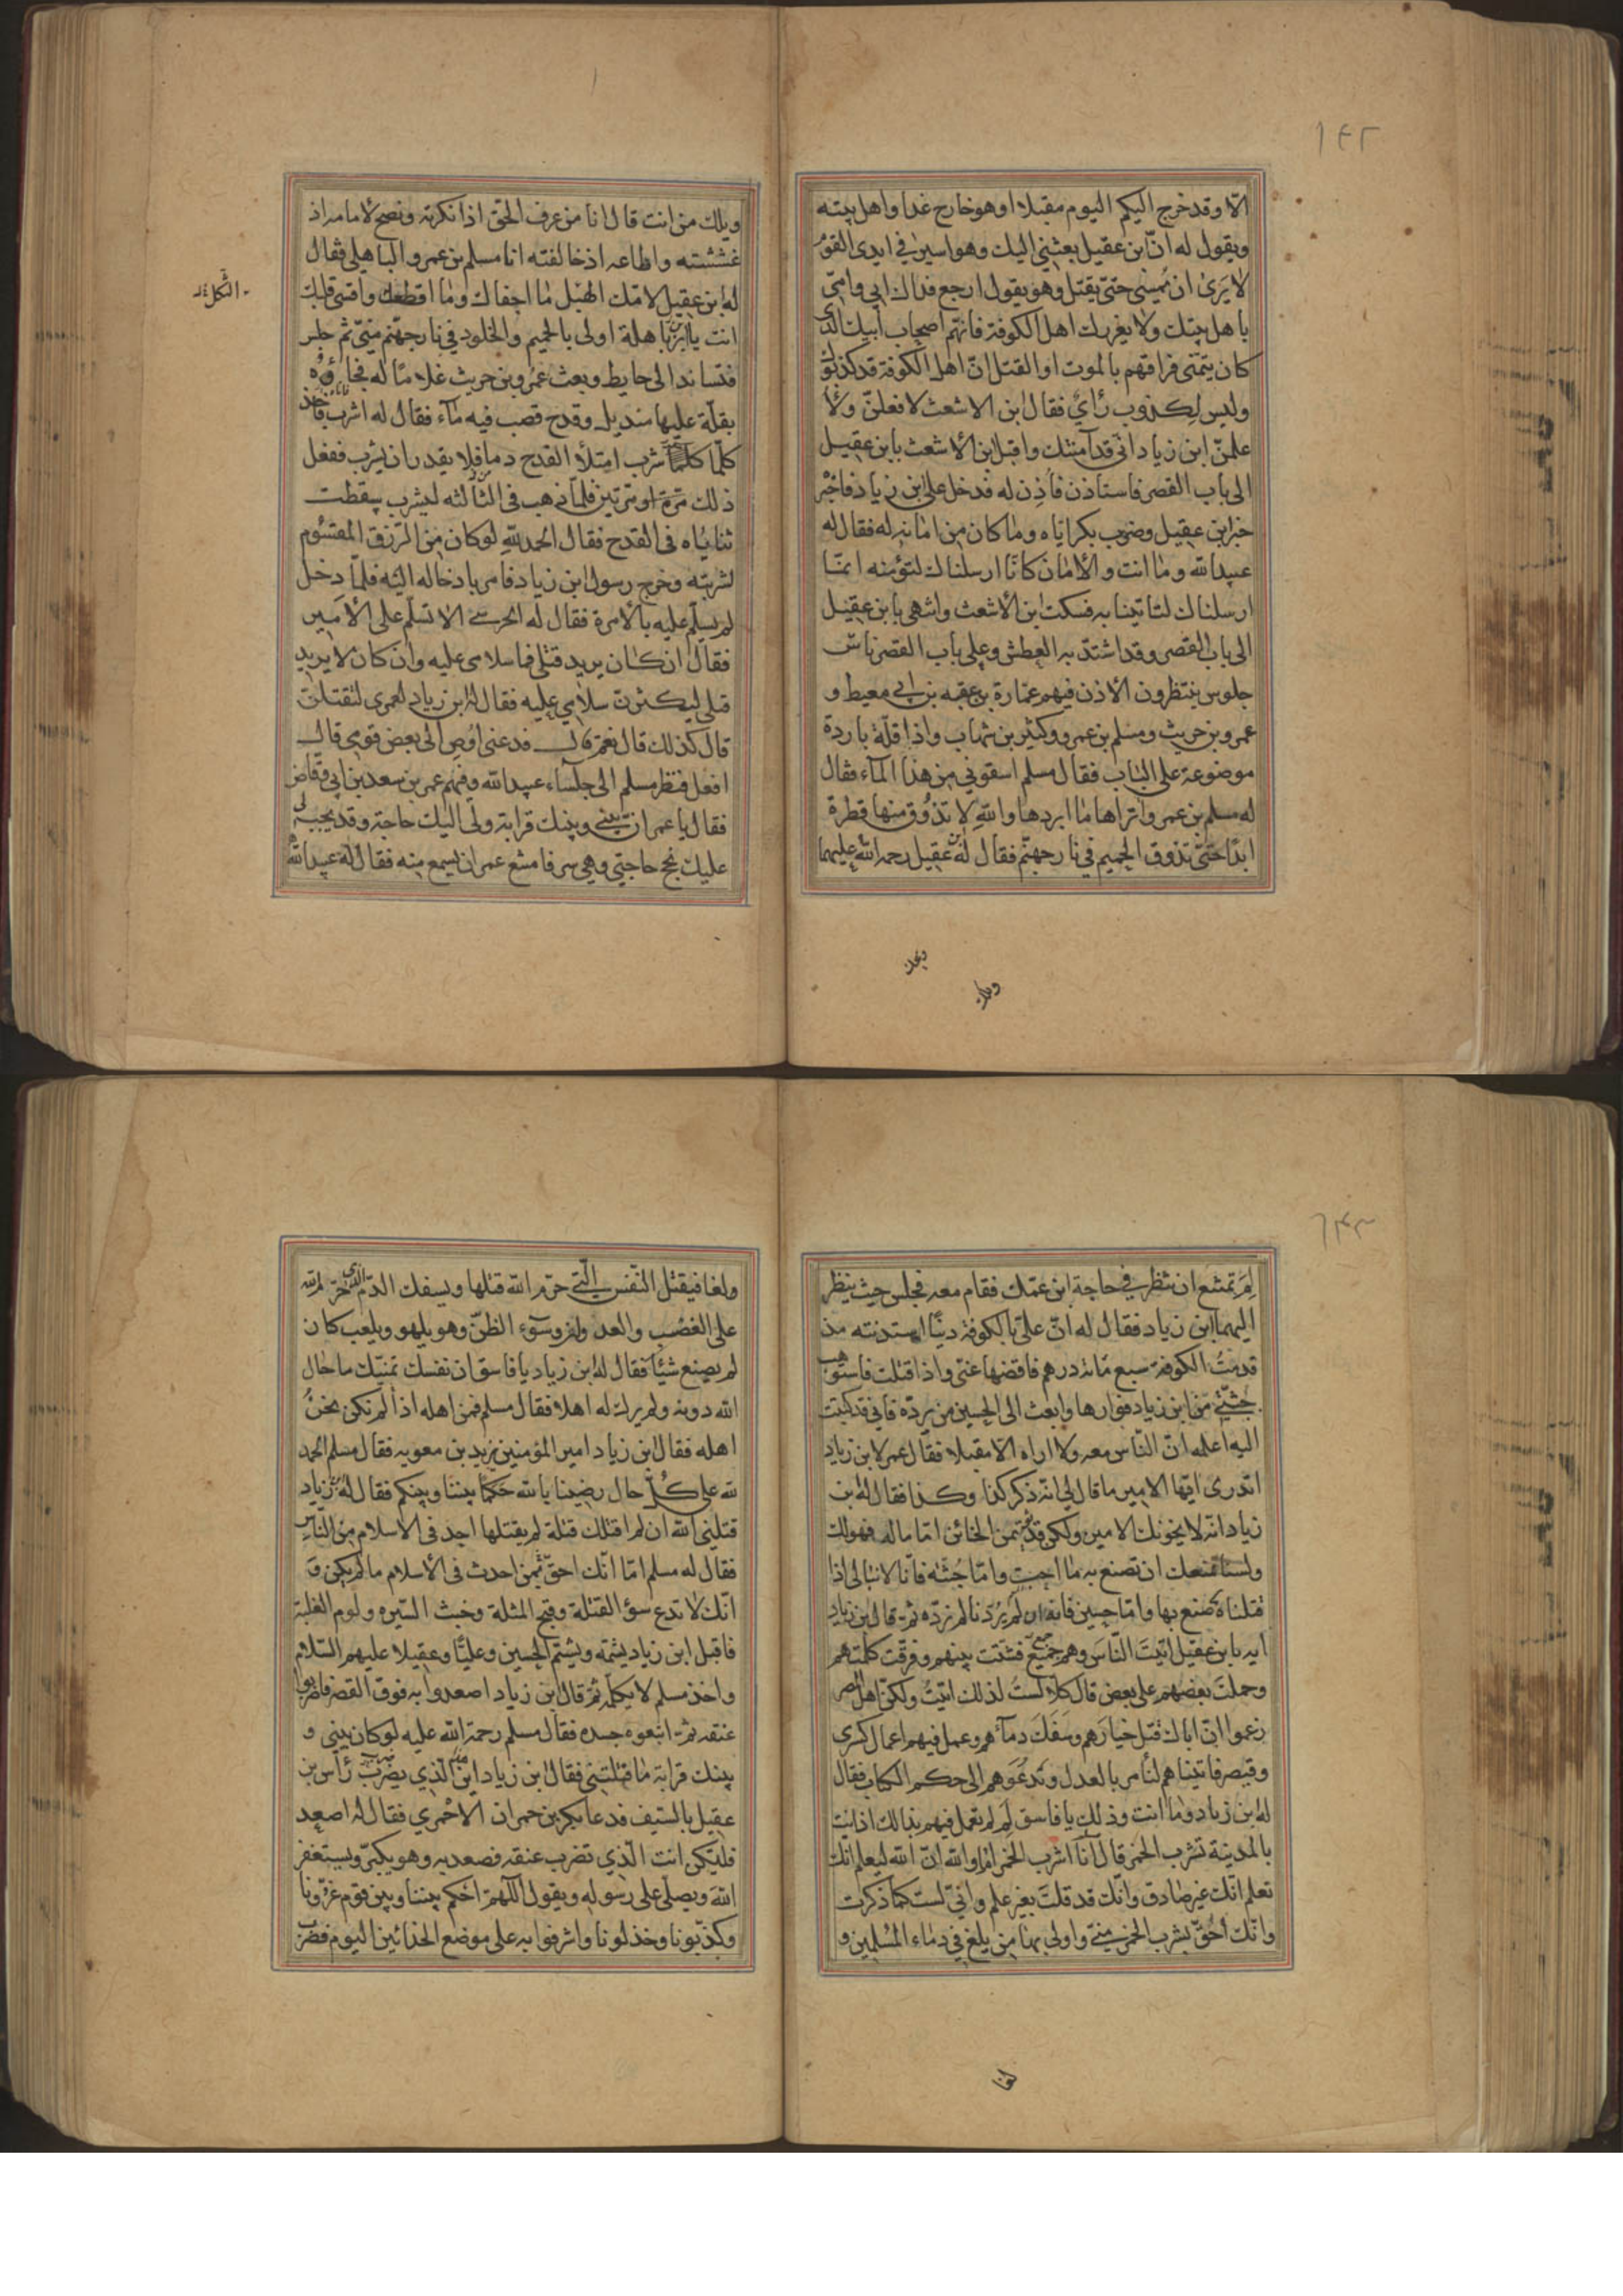 ۱۴۲
الّا وقد خرج اليكم اليوم مقبلا او هو خارج غدا واهل بيته
ويقول له انّ ابن عقيل بعثني اليك وهو اسير في ايدى القوم
لا يرى ان يمسى حتّى يقتل وهو يقول ارجع فداك ابي وامّي
باهل بيتك ولا يغررك اهل الكوفة فانهم اصحاب ابيك الّذى
كان يتمنّى فراقهم بالموت او القتل انّ اهل الكوفة قد كذبوك
وليس لكذوب رأي فقال ابن الاشعث لافعلنّ ولأ
علمنّ ابن زياد انّي قد آمنتك واقبل ابن الأشعث بابن عقيل
الى باب القصر فاستاذن فأذن له فدخل على ابن زياد فاخبره
خبر ابن عقيل وضرب بكر ايّاه وما كان من امانه له فقال له
عبيد الله وما انت والأمان كانّا ارسلناك لتؤمنه انمّا
ارسلناك لتاتينا به فسكت ابن الأشعث وانتهى بابن عقيل
الى باب القصر وقد اشتدّ به العطش وعلى باب القصر ناس
جلوس ينتظرون الأذن فيهم عمّارة بن عقبه بن ابي معيط و
عمرو بن حريث ومسلم بن عمرو وكثير بن شهاب واذا قلّة باردة
موضوعة على الباب فقال مسلم اسقوني من هذا المآء فقال
له مسلم بن عمرو اتراها ما ابردها والله لا تذوق منها قطرة
ابدًا حتّى تذوق الحميم في نار جهنّم فقال له ابن عقيل رحمة الله عليهما
ويحك
ويلك
ويلك من انت قال انا من عرف الحقّ اذا نكرته ونصح لامامه اذ
غششته واطاعه اذ خالفته انا مسلم بن عمرو الباهلي فقال
له ابن عقيل لامّك الهبل ما اجفاك وما اقطعك واقسى قلبك
الثّكل
انت يا ابن باهلة اولى بالحميم والخلود في نار جهنّم منّي ثم جلس
فتساند الى حايط وبعث عمرو بن حريث غلامًا له فجاءه
بقلّة عليها منديل وقدح فصب فيه مآء فقال له اشرب فاخذ
كلّما شرب امتلأ القدح دما فلا يقدر ان يشرب ففعل
ذلك مرّة او مرّتين فلمّا ذهب في الثّالثه ليشرب سقطت
ثناياه في القدح فقال الحمد لله لو كان من الرّزق المقسُوم
لشربته وخرج رسول ابن زياد فامر بادخاله اليه فلمّا دخل
لم يسلّم عليه بالأمرة فقال له الحرسي الا تسلّم على الأمير
فقال ان كان يريد قتلى فما سلامى عليه وان كان لا يريد
قتلي ليكثرنّ سلامي عليه فقال له ابن زياد لعمرى لتقتلنّ
قال كذلك قال نعم قال فدعنى اوُصِ الى بعض قومي قال
افعل فنظر مسلم الى جلسآء عبيد الله وفيهم عمر بن سعد بن ابي وقّاص
فقال يا عمر انّ بيني وبينك قرابة ولى اليك حاجة وقد يجب لى
عليك نجح حاجتي وهي سر فامتنع عمر ان يسمع منه فقال له عبيد الله
۱۴۳
لِمَ تمتنع ان تنظر في حاجة ابن عمّك فقام معه فجلس حيث ينظر
اليهما ابن زياد فقال له انّ علىّ بالكوفة دينًا استدنته مذ
قدمتُ الكوفة سبع مائة درهم فاقضها عنّى واذا قتلت فاستوهب
جثّتي من ابن زياد فوارها وابعث الى الحسين من يردّه فاني قد كتبت
اليه اعلمه انّ النّاس معه ولا اراه الا مقبلا فقال عمر لابن زياد
اتدرى ايّها الامير ما قال لي انّه ذكر كذا وكذا فقال له ابن
زياد انّه لا يخونك الامين ولكن قد يؤتمن الخائن امّا ماله فهو لك
ولسنا نمنعك ان تصنع به ما احبت وامّا جُثّته فانّا لا نبالى اذا
قتلناه ما صنع بها وامّا حسين فانه ان لم يُردنا لم نردّه ثمّ قال ابن زياد
ايه يا بن عقيل اتيتَ النّاسَ وهم جميع فشتت بينهم وفرقّت كلمتهم
وحملتَ بعضهم على بعض قال كلّا لستُ لذلك اتيتُ ولكنّ اهل المصر
زعموا انّ اباك قتل خيارَهم وسفكَ دمآءهم وعمل فيهم اعمال كسرى
وقيصر فاتيناهم لنأمر بالعدل وندعوهم الى حكم الكتاب فقال
له ابن زياد وما انت وذلك يا فاسق لِمَ لم تعمل فيهم بذالك اذ انت
بالمدينة تشرب الخمر قال أنا اشرب الخمر اما والله انّ الله ليعلم انّك
تعلم انّك غير صادق وانّك قد قلتَ بغير علم وانيّ لست كما ذكرت
وانّك احُقّ بشرب الخمر منّي واولى بها من يلغ في دماء المُسلمين و
لغا
ولغا فيقتل النّفس الّتي حرّم الله قتلها ويسفك الدّم الّذى حرّم الله
على الغصب والعداوة وسوء الظنّ وهو يلهو ويلعب كان
لم يصنع شيئا فقال له ابن زياد يا فاسق ان نفسك تمنّيك ما حال
الله دونه ولم يرك له اهلا فقال مسلم فمن اهله اذا لم نكن نحنُ
اهله فقال ابن زياد امير المؤمنين يزيد بن معويه فقال مسلم الحمد
لله على كُلّ حال رضينا بالله حكما بيننا وبينكم فقال له ابن زياد
قتلني الله ان لم اقتلك قتلة لم يقتلها احد في الاسلام من النّاس
فقال له مسلم امّا انّك احقّ من احدث في الأسلام ما لم يكن وَ
انّك لا تدع سؤ القتلة وقبح المثلة وخبث السّيره ولوم الغلبة
فاقبل ابن زياد يشتمه ويشتم الحسين وعليًّا وعقيلا عليهم السّلام
واخذ مسلم لا يكلّمه ثم قال ابن زياد اصعدوا به فوق القصر فاضربوا
عنقه ثمّ اتبعوه جسده فقال مسلم رحمة الله عليه لو كان بيني و
بينك قرابة ما قتلتني فقال ابن زياد اين الّذي يضرب رأس بن
عقيل بالسّيف فدعا بكر بن حمران الاحمري فقال له اصعد
فليكن انت الّذي تضرب عنقه فصعد به وهو يكبّر ويستغفر
اللهَ ويصلّي على رسوله ويقول اللّهمّ احكم بيننا وبين قوم غرّونا
وكذّبونا وخذلونا واشرفوا به على موضع الحذائين اليوم فضرب